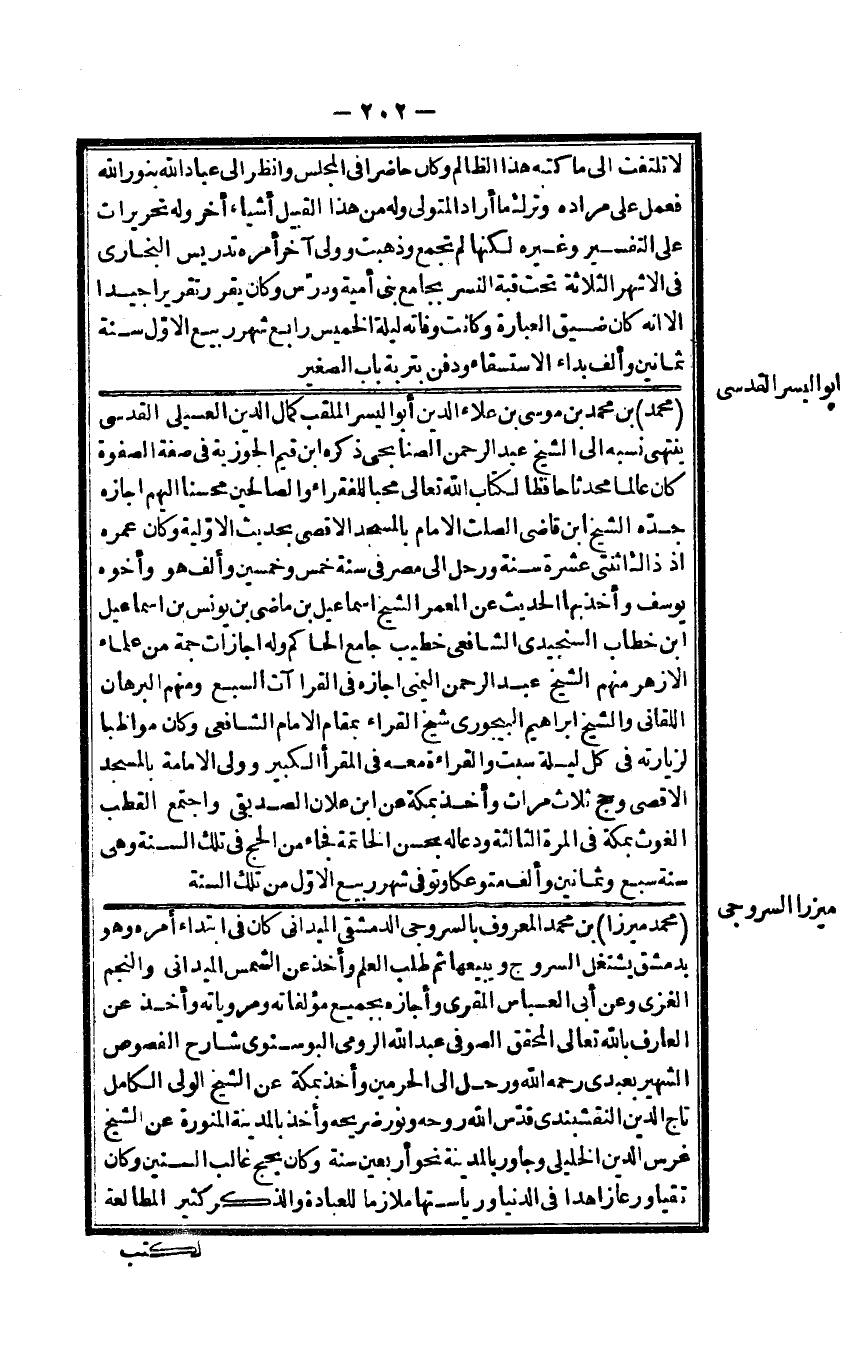 — ٢٠٢ —
لا تلتفت الى ما كتبه هذا الظالم وكان حاضرا فى المجلس وانظر الى عباد الله بنور الله
فعمل على مراده وترك ما أراد المتولى وله من هذا القبيل أشياء أخر وله تحريرات
على التفسير وغيره لكنها لم تجمع وذهبت وولى آخر أمره تدريس البخارى
فى الاشهر الثلاثة تحت قبة النسر بجامع بنى أمية ودرّس وكان يقرر تقريرا جيدا
الا انه كان ضيق العبارة وكانت وفاته ليلة الخميس رابع شهر ربيع الاوّل سنة
ثمانين وألف بداء الاستسقاء ودفن بتربة باب الصغير
ابو اليسر القدسى
(محمد) بن محمد بن موسى بن علاء الدين أبو اليسر الملقب كمال الدين العسيلى القدسى
ينتهى نسبه الى الشيخ عبد الرحمن الصنابحى ذكره ابن قيم الجوزية فى صفة الصفوة
كان عالما محدثا حافظا لكتاب الله تعالى محبا للفقراء والصالحين محسنا اليهم اجازه
جدّه الشيخ ابن قاضى الصلت الامام بالمسجد الاقصى بحديث الاوّلية وكان عمره
اذ ذاك اثنتى عشرة سنة ورحل الى مصر فى سنة خمس وخمسين وألف هو وأخوه
يوسف وأخذ بها الحديث عن المعمر الشيخ اسماعيل بن ماضى بن يونس بن اسماعيل
ابن خطاب السنجيدى الشافعى خطيب جامع الحاكم وله اجازات جمة من علماء
الازهر منهم الشيخ عبد الرحمن اليمنى اجازه فى القرا آت السبع ومنهم البرهان
اللقانى والشيخ ابراهيم البيجورى شيخ القراء بمقام الامام الشافعى وكان مواظبا
لزيارته فى كل ليلة سبت والقراءة معه فى المقرأ الكبير وولى الامامة بالمسجد
الاقصى وحج ثلاث مرات وأخذ بمكة عن ابن علان الصديقى واجتمع القطب
الغوث بمكة فى المرة الثالثة ودعا له بحسن الخاتمة فجاء من الحج فى تلك السنة وهى
سنة سبع وثمانين وألف متوعكا وتوفى شهر ربيع الاوّل من تلك السنة
ميرزا السروجى
(محمد ميرزا) بن محمد المعروف بالسروجى الدمشقى الميدانى كان فى ابتداء أمره وهو
بدمشق يشتغل السروج ويبيعها ثم طلب العلم وأخذ عن الشمس الميدانى والنجم
الغزى وعن أبى العباس المقرى وأجازه بجميع مؤلفاته ومروياته وأخذ عن
العارف بالله تعالى المحقق الصوفى عبد الله الرومى البوسنوى شارح الفصوص
الشهير بعبدى رحمه الله ورحل الى الحرمين وأخذ بمكة عن الشيخ الولى الكامل
تاج الدين النقشبندى قدّس الله روحه ونور ضريحه وأخذ بالمدينة المنورة عن الشيخ
غرس الدين الخليلى وجاور بالمدينة نحو أربعين سنة وكان يحج غالب السنين وكان
تقيا ورعا زاهدا فى الدنيا ورياستها ملازما للعبادة والذكر كثير المطالعة
لكتب